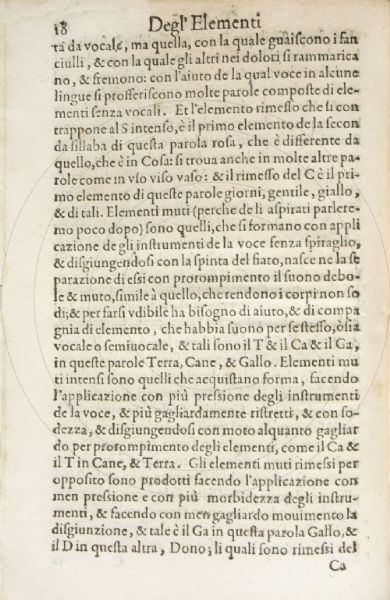 18 Degl' Elementi
ta da vocale, ma quella, con la quale guaiſcono i fan
ciulli, & con la quale gli altri nei dolori ſi rammarica
no, & fremono: con l'aiuto de la qual voce in alcune
lingue ſi profferiſcono molte parole compoſte di ele-
menti ſenza vocali. Et l'elemento rimeſſo che ſi con
trappone al S intenſo, è il primo elemento de la ſecon
da ſillaba di queſta parola roſa, che è differente da
quello, che è in Coſa: ſi troua anche in molte altre pa-
role come in vſo viſo vaſo: & il rimeſſo del C è il pri-
mo elemento di queſte parole giorni, gentile, giallo,
& di tali. Elementi muti (perche de li aſpirati parlere-
mo poco dopo) ſono quelli, che ſi formano con appli
cazione de gli inſtrumenti de la voce ſenza ſpiraglio,
& diſgiungendoſi con la ſpinta del fiato, naſce ne la ſe
parazione di eſſi con prorompimento il ſuono debo-
le & muto, ſimile à quello, che rendono i corpi non ſo
di; & per farſi vdibile ha biſogno di aiuto, & di compa
gnia di elemento, che habbia ſuono per ſe ſteſſo, ò ſia
vocale o ſemiuocale, & tali ſono il T & il Ca & il Ga,
in queſte parole Terra, Cane, & Gallo. Elementi mu
ti intenſi ſono quelli che acquiſtano forma, facendo
l'applicazione con più preſſione degli inſtrumenti
de la voce, & più gagliardamente riſtretti, & con ſo-
dezza, & diſgiungendoſi con moto alquanto gagliar
do per prorompimento degli elementi, come il Ca &
il T in Cane, & Terra. Gli elementi muti rimeſſi per
oppoſito ſono prodotti facendo l'applicazione con
men preſſione e con più morbidezza degli inſtru-
menti, & facendo con men gagliardo mouimento la
diſgiunzione, & tale è il Ga in queſta parola Gallo, &
il D in queſta altra, Dono; li quali ſono rimeſſi del
Ca